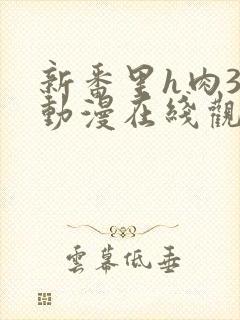 新番里h肉3
動漫在綫觀
雲幕低垂